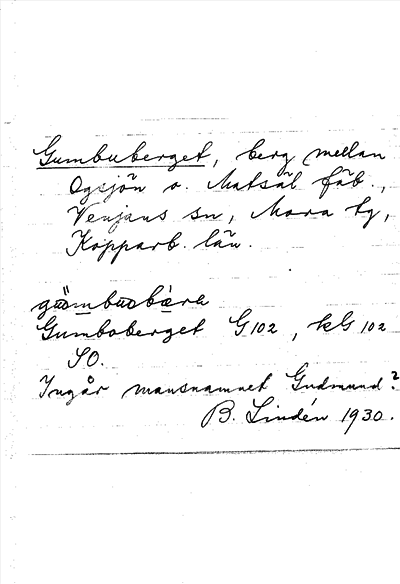 Gumbuberget, berg mellan
Ogsjön o. Matsäl fäb.,
Venjans sn, Mora tg,
Kopparb. län.
Gumboberget G102, kG 102
SO.
Ingår mansnamnet Gudmund?
B. Lindén 1930.